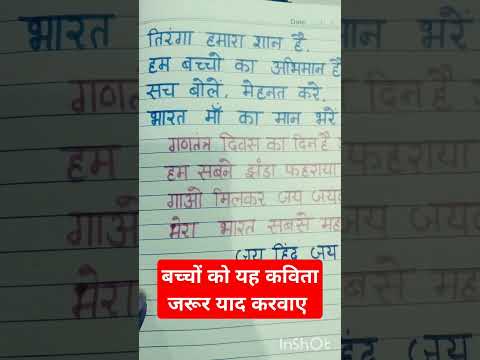 Date
तिरंगा हमारा शान है,
हम बच्चो का अभिमान है
सच बोलें, मेहनत करे,
भारत माँ का मान भरें
गणतंत्र दिवस का दिन है
हम सबने झंडा फहराया
गाओ मिलकर जय
मेरा भारत सबसे
जय हिंद जय
बच्चों को यह कविता
जरूर याद करवाए
InShOt